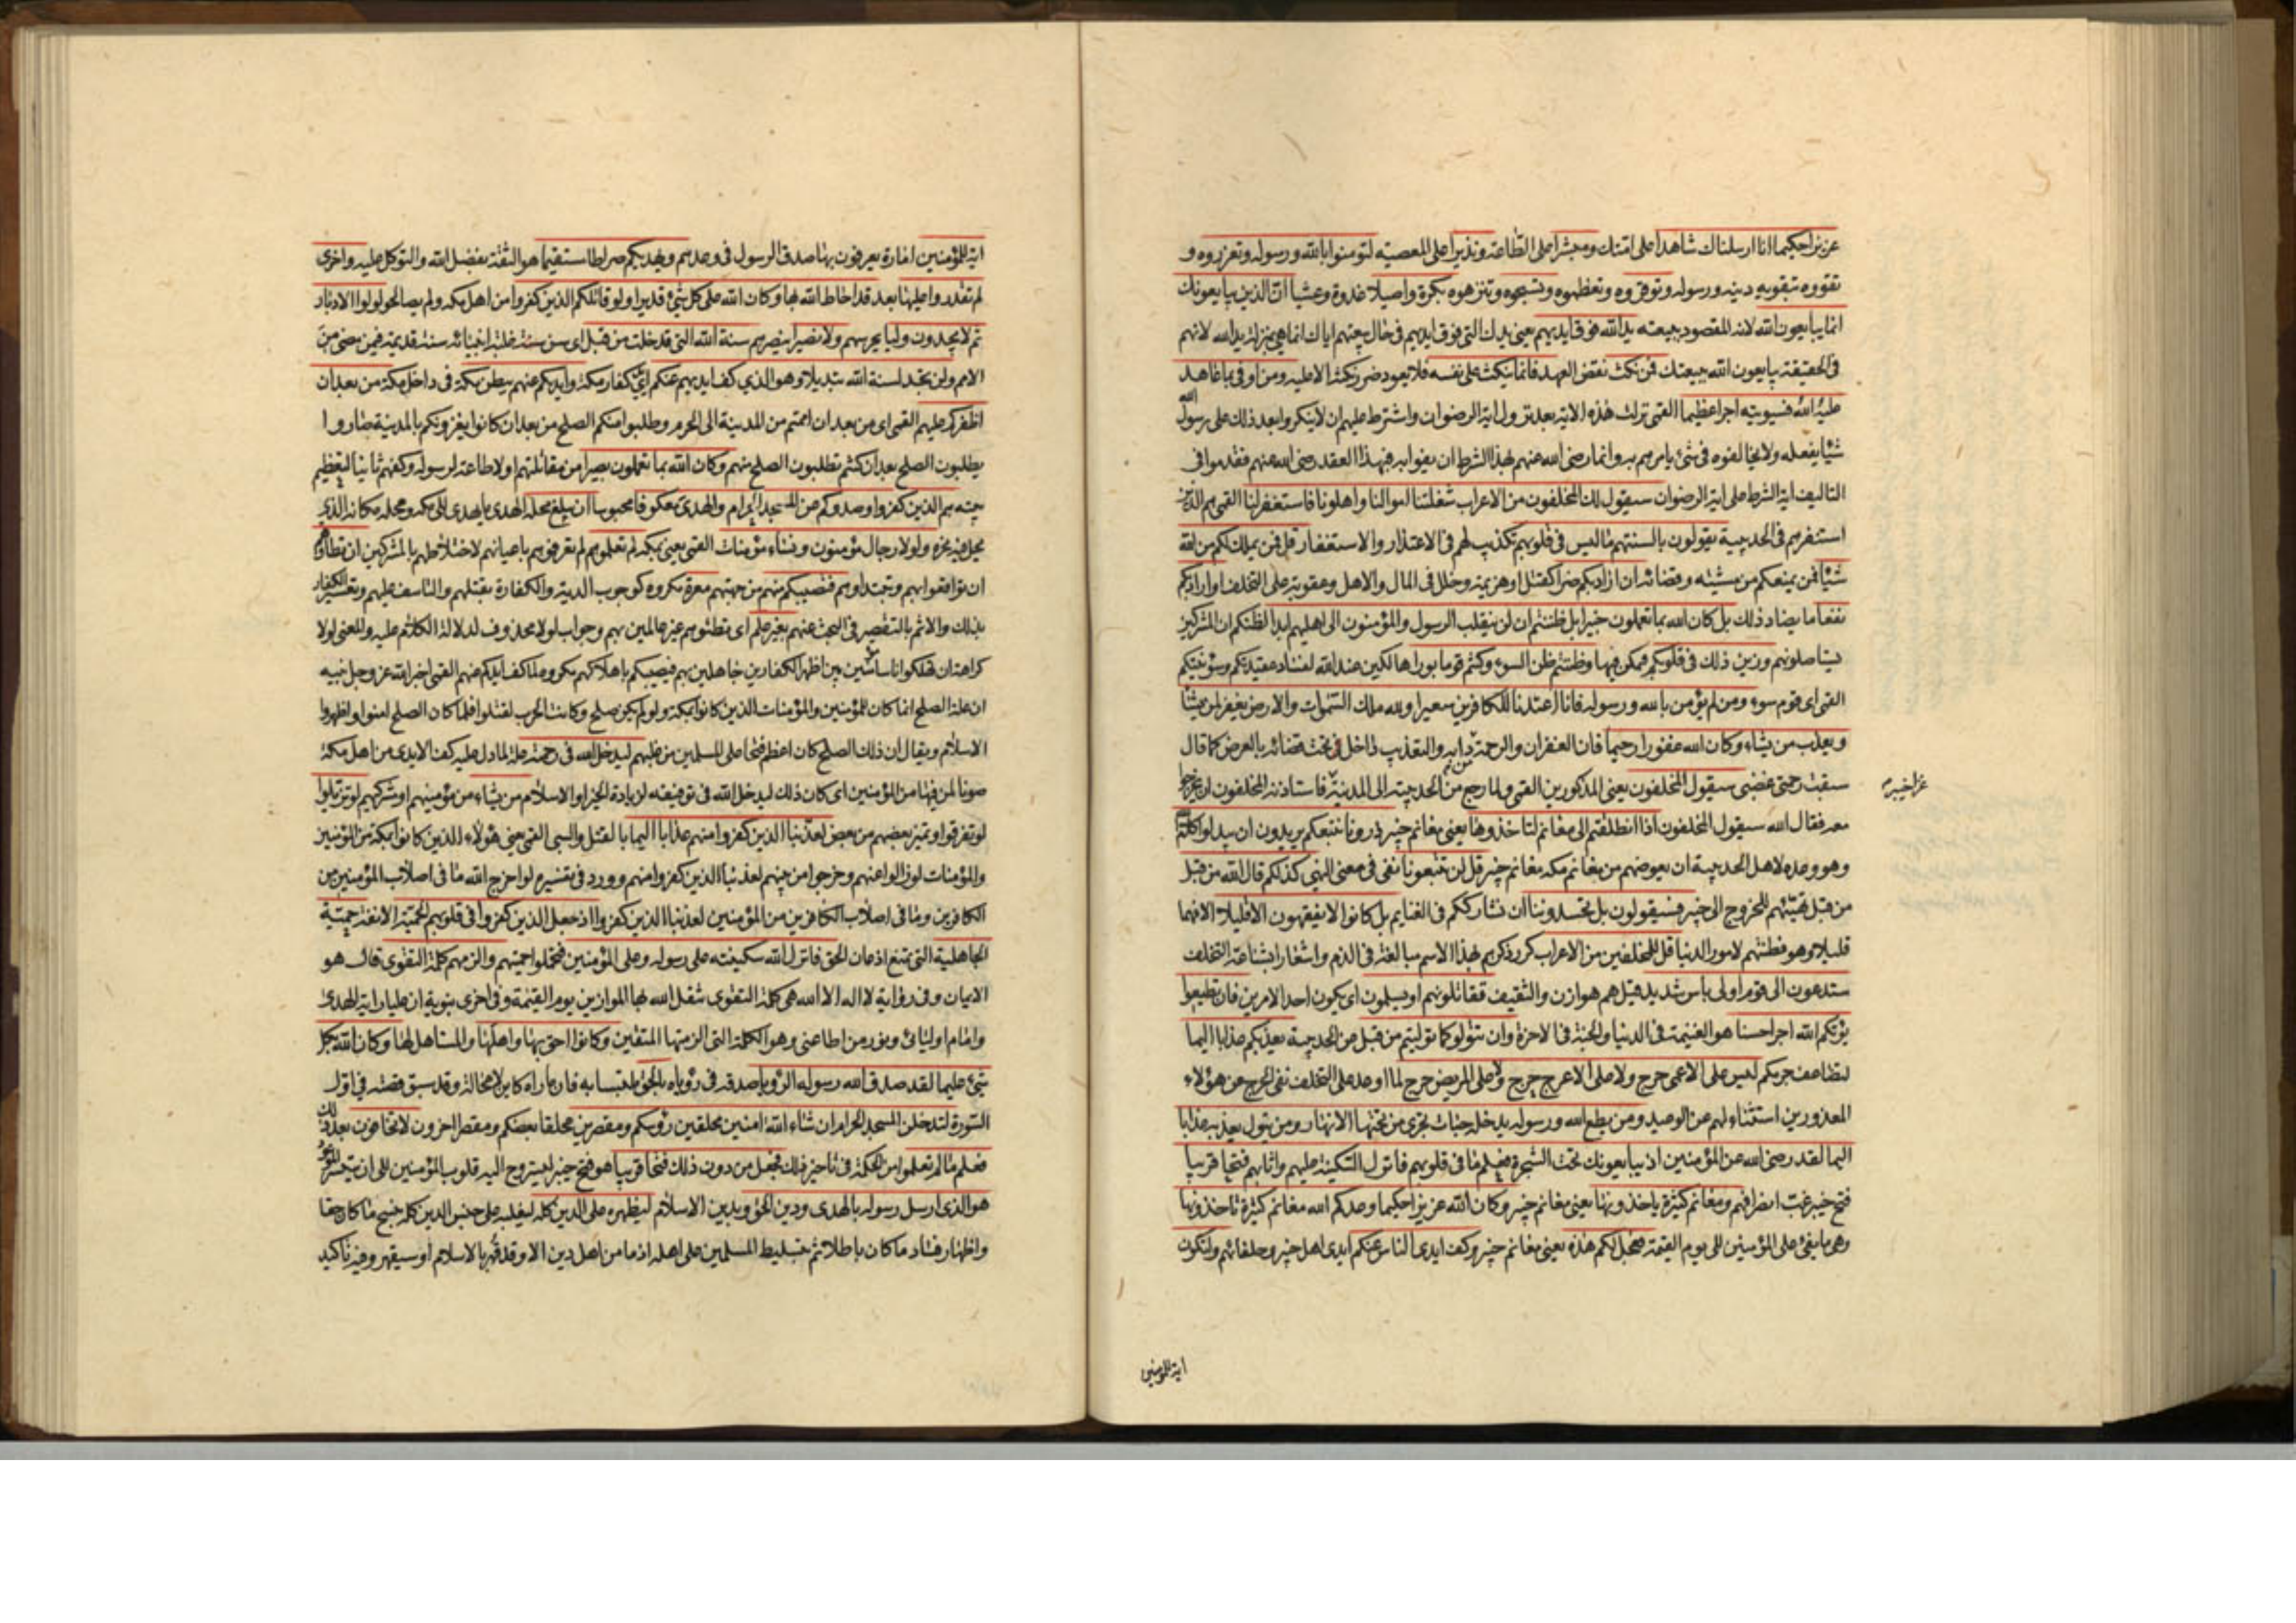 عزيزا حكيما انا ارسلناك شاهدا على امتك ومبشرا على الطاعة ونذيرا على المعصية لتؤمنوا بالله ورسوله وتعزروه و
تقووه بتقوية دينه ورسوله وتوقروه وتعظموه وتسبحوه وتنزهوه بكرة واصيلا غدوة وعشيا ان الذين يبايعونك
انما يبايعون الله لانه المقصود ببيعته يد الله فوق ايديهم يعني يدك التي فوق ايديهم في حال بيعتهم اياك انما هي بمنزلة يد الله لانهم
في الحقيقة يبايعون الله ببيعتك فمن نكث نقض العهد فانما ينكث على نفسه فلا يعود ضرر نكثه الا عليه ومن اوفى بما عاهد
عليه الله فسيؤتيه اجرا عظيما القمي نزلت هذه الاية بعد نزول اية الرضوان واشترط عليهم ان لا ينكروا بعد ذلك على رسول الله
شيئا يفعله ولا يخالفوه في شيء يامرهم به وانما رضي الله عنهم بهذا الشرط ان يفوا به فبهذا العقد رضي الله عنهم فقدموا في
التاليف اية الشرط على اية الرضوان سيقول لك المخلفون من الاعراب شغلتنا اموالنا واهلونا فاستغفر لنا القمي هم الذين
استنفرهم في الحديبية يقولون بالسنتهم ما ليس في قلوبهم تكذيب لهم في الاعتذار والاستغفار قل فمن يملك لكم من الله
شيئا فمن يمنعكم من مشيته وقضائه ان اراد بكم ضرا كقتل او هزيمة وخلل في المال والاهل وعقوبة على التخلف او اراد بكم
نفعا ما يضاد ذلك بل كان الله بما تعملون خبيرا بل ظننتم ان لن ينقلب الرسول والمؤمنون الى اهليهم ابدا لظنكم ان المشركين
يستاصلونهم وزين ذلك في قلوبكم فتمكن فيها وظننتم ظن السوء وكنتم قوما بورا هالكين عند الله لفساد عقيدتكم وسوء نيتكم
القمي اي قوم سوء ومن لم يؤمن بالله ورسوله فانا اعتدنا للكافرين سعيرا ولله ملك السموات والارض يغفر لمن يشاء
ويعذب من يشاء وكان الله غفورا رحيما فان الغفران والرحمة من دابه والتعذيب داخل تحت قضائه بالعرض كما قال
سبقت رحمتي غضبي سيقول المخلفون يعني المذكورين القمي ولما رجع من الحديبية الى المدينة فاستاذنه المخلفون ان يخرجوا
غزا خيبر
معه فقال الله سيقول المخلفون اذا انطلقتم الى مغانم لتاخذوها يعني مغانم خيبر ذرونا نتبعكم يريدون ان يبدلوا كلام الله
وهو وعده لاهل الحديبية ان يعوضهم من مغانم مكه مغانم خيبر قل لن تتبعونا نفي في معنى النهي كذلكم قال الله من قبل
من قبل تهيئهم للخروج الى خيبر فسيقولون بل تحسدوننا ان نشارككم في الغنايم بل كانوا لا يفقهون الا قليلا الا فهما
قليلا وهو فطنتهم لامور الدنيا قل للمخلفين من الاعراب كرر ذكرهم بهذا الاسم مبالغة في الذم واشعارا بشناعة التخلف
ستدعون الى قوم اولى باس شديد قيل هم هوازن والثقيف تقاتلونهم او يسلمون اي يكون احد الامرين فان تطيعوا
يؤتكم الله اجرا حسنا هو الغنيمة في الدنيا والجنة في الاخرة وان تتولوا كما توليتم من قبل عن الحديبية يعذبكم عذابا اليما
لتضاعف جرمكم ليس على الاعمى حرج ولا على الاعرج حرج ولا على المريض حرج لما اوعد على التخلف نفى الحرج عن هؤلاء
المعذورين استثناء لهم عن الوعيد ومن يطع الله ورسوله يدخله جنات تجري من تحتها الانهار ومن يتول يعذبه عذابا
اليما لقد رضي الله عن المؤمنين اذ يبايعونك تحت الشجرة فعلم ما في قلوبهم فانزل السكينة عليهم واثابهم فتحا قريبا
فتح خيبر غب انصرافهم ومغانم كثيرة ياخذونها يعني مغانم خيبر وكان الله عزيزا حكيما وعدكم الله مغانم كثيرة تاخذونها
وهي ما يفيء على المؤمنين الى يوم القيمة فعجل لكم هذه يعني مغانم خيبر وكف ايدي الناس عنكم ايدي اهل خيبر وحلفائهم ولتكون
اية للمؤمنين
اية للمؤمنين امارة يعرفون بها صدق الرسول في وعدهم ويهديكم صراطا مستقيما هو الثقة بفضل الله والتوكل عليه واخرى
لم تقدروا عليها بعد قد احاط الله بها وكان الله على كل شيء قديرا ولو قاتلكم الذين كفروا من اهل مكه ولم يصالحوا لولوا الادبار
ثم لا يجدون وليا يحرسهم ولا نصيرا ينصرهم سنة الله التي قد خلت من قبل اي سن سنة غلبة انبيائه سنة قديمة فيمن مضى من
الامم ولن تجد لسنة الله تبديلا وهو الذي كف ايديهم عنكم ايدي كفار مكة وايديكم عنهم ببطن مكة في داخل مكة من بعد ان
اظفركم عليهم القمي اي من بعد ان اممتم من المدينة الى الحرم وطلبوا منكم الصلح من بعد ان كانوا يغزونكم بالمدينة صاروا
يطلبون الصلح بعد ان كنتم تطلبون الصلح منهم وكان الله بما تعملون بصيرا من مقاتلتهم اولا طاعة لرسوله وكفهم ثانيا لتعظيم
بيته هم الذين كفروا وصدوكم عن المسجد الحرام والهدي معكوفا محبوسا ان يبلغ محله الهدي ما يهدى الى مكه ومحله مكانه الذي
يحل فيه نحره ولولا رجال مؤمنون ونساء مؤمنات القمي يعني بمكه لم تعلموهم لم تعرفوهم باعيانهم لاختلاطهم بالمشركين ان تطاؤهم
ان توافقوا بهم وتبيدوهم فتصيبكم منهم من جهتهم معرة مكروه كوجوب الدية والكفارة بقتلهم والتاسف عليهم وتعيير الكفار
بذلك والاثم بالتقصير في البحث عنهم بغير علم اي تطئوهم غير عالمين بهم وجواب لولا محذوف لدلالة الكلام عليه والمعنى لولا
كراهة ان تهلكوا اناسا مؤمنين بين اظهر الكفار ين جاهلين بهم فيصيبكم باهلاكهم مكروه لما كف ايديكم عنهم القمي اخبر الله عز وجل نبيه
ان علة الصلح انما كان للمؤمنين والمؤمنات الذين كانوا بمكه ولو لم يكن صلح وكانت الحرب لقتلوا فلما كان الصلح امنوا واظهروا
الاسلام ويقال ان ذلك الصلح كان اعظم فتحا على المسلمين من غلبهم ليدخل الله في رحمته علة لما دل عليه كف الايدي من اهل مكة
صونا لمن فيها من المؤمنين اي كان ذلك ليدخل الله في توفيقه لزيادة الخير او الاسلام من يشاء من مؤمنيهم او مشركيهم لو تزيلوا
لو تفرقوا وتميز بعضهم من بعض لعذبنا الذين كفروا منهم عذابا اليما بالقتل والسبي القمي يعني هؤلاء الذين كانوا بمكة من المؤمنين
والمؤمنات لو زالوا عنهم وخرجوا من بينهم لعذبنا الذين كفروا منهم وورد في تفسيره لو اخرج الله ما في اصلاب المؤمنين من
الكافرين وما في اصلاب الكافرين من المؤمنين لعذبنا الذين كفروا اذ جعل الذين كفروا في قلوبهم الحمية الانفة حمية
الجاهلية التي تمنع اذعان الحق فانزل الله سكينته على رسوله وعلى المؤمنين فتحملوا حميتهم والزمهم كلمة التقوى قال هو
الايمان وفي رواية لا اله الا الله هي كلمة التقوى يثقل الله بها الموازين يوم القيمة وفي اخرى نبوية ان عليا راية الهدى
وامام اوليائي ونور من اطاعني وهو الكلمة التي الزمتها المتقين وكانوا احق بها واهلها والمستاهل لها وكان الله بكل
شيء عليما لقد صدق الله رسوله الرؤيا صدقه في رؤياه بالحق ملتبسا به فان ما راه كاين لا محالة وقد سبق قصته في اول
السورة لتدخلن المسجد الحرام ان شاء الله امنين محلقين رؤسكم ومقصرين محلقا بعضكم ومقصرا اخرون لا تخافون بعد ذلك
فعلم ما لم تعلموا من الحكمة في تاخير ذلك فجعل من دون ذلك فتحا قريبا هو فتح خيبر ليستروح اليه قلوب المؤمنين الى ان يتيسر الموعود
هو الذي ارسل رسوله بالهدى ودين الحق وبدين الاسلام ليظهره على الدين كله ليغلبه على جنس الدين كله بنسخ ما كان حقا
واظهار فساد ما كان باطلا ثم بتسليط المسلمين على اهله اذ ما من اهل دين الا وقد قهر بالاسلام او سيقهر وفيه تاكيد